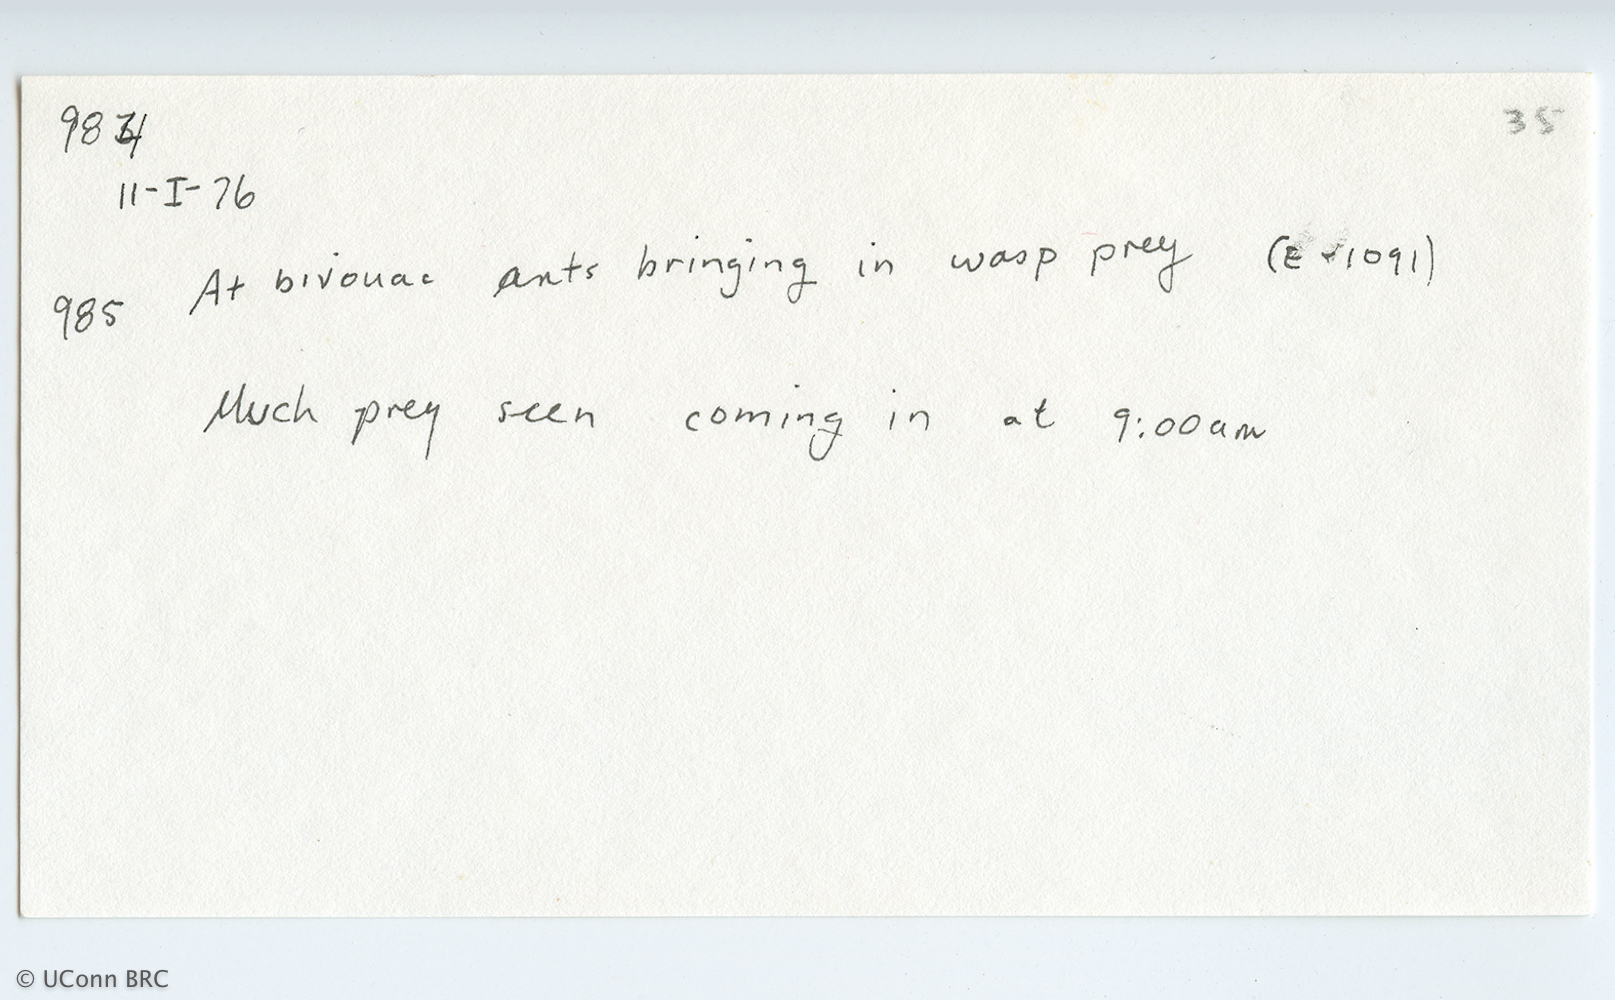 984 35
11-I-76
At bivouac ants bringing in wasp prey (E-1091)
985
Much prey seen coming in at 9:00am
© UConn BRC